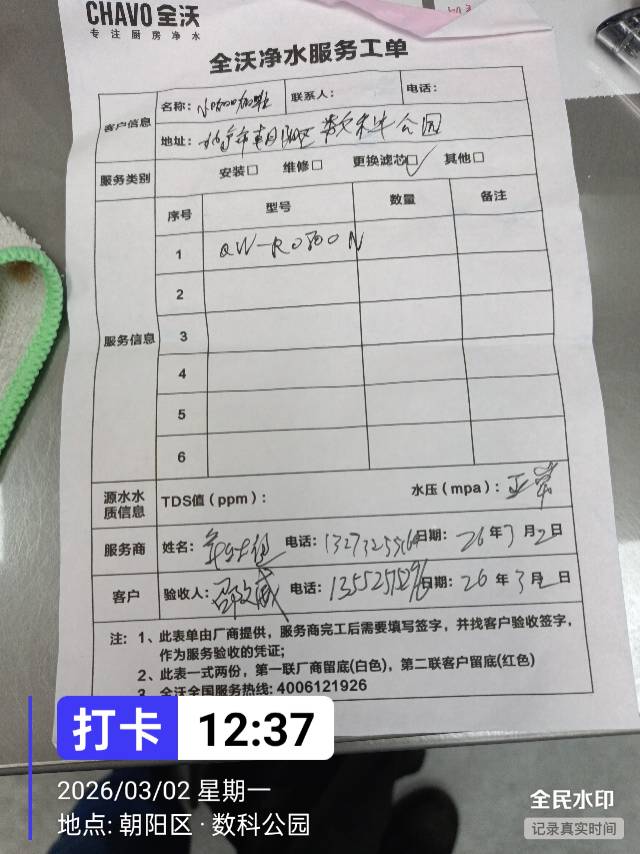 CHAVO 全沃
专注厨房净水
全沃净水服务工单
客户信息
名称: 联系人: 电话:
地址: 北京市朝阳区数科公园
服务类别 安装□ 维修□ 更换滤芯□✓ 其他□
服务信息
序号 型号 数量 备注
1 QW-RO800N
2
3
4
5
6
源水水质信息 TDS值(ppm): 水压(mpa): 正常
服务商 姓名: 电话: 日期: 26年3月2日
客户 验收人: 邵文威 电话: 日期: 26年3月2日
注: 1、此表单由厂商提供，服务商完工后需要填写签字，并找客户验收签字，
作为服务验收的凭证;
2、此表一式两份，第一联厂商留底(白色)，第二联客户留底(红色)
3、全沃全国服务热线: 4006121926
打卡 12:37
2026/03/02 星期一
地点: 朝阳区·数科公园
全民水印
记录真实时间